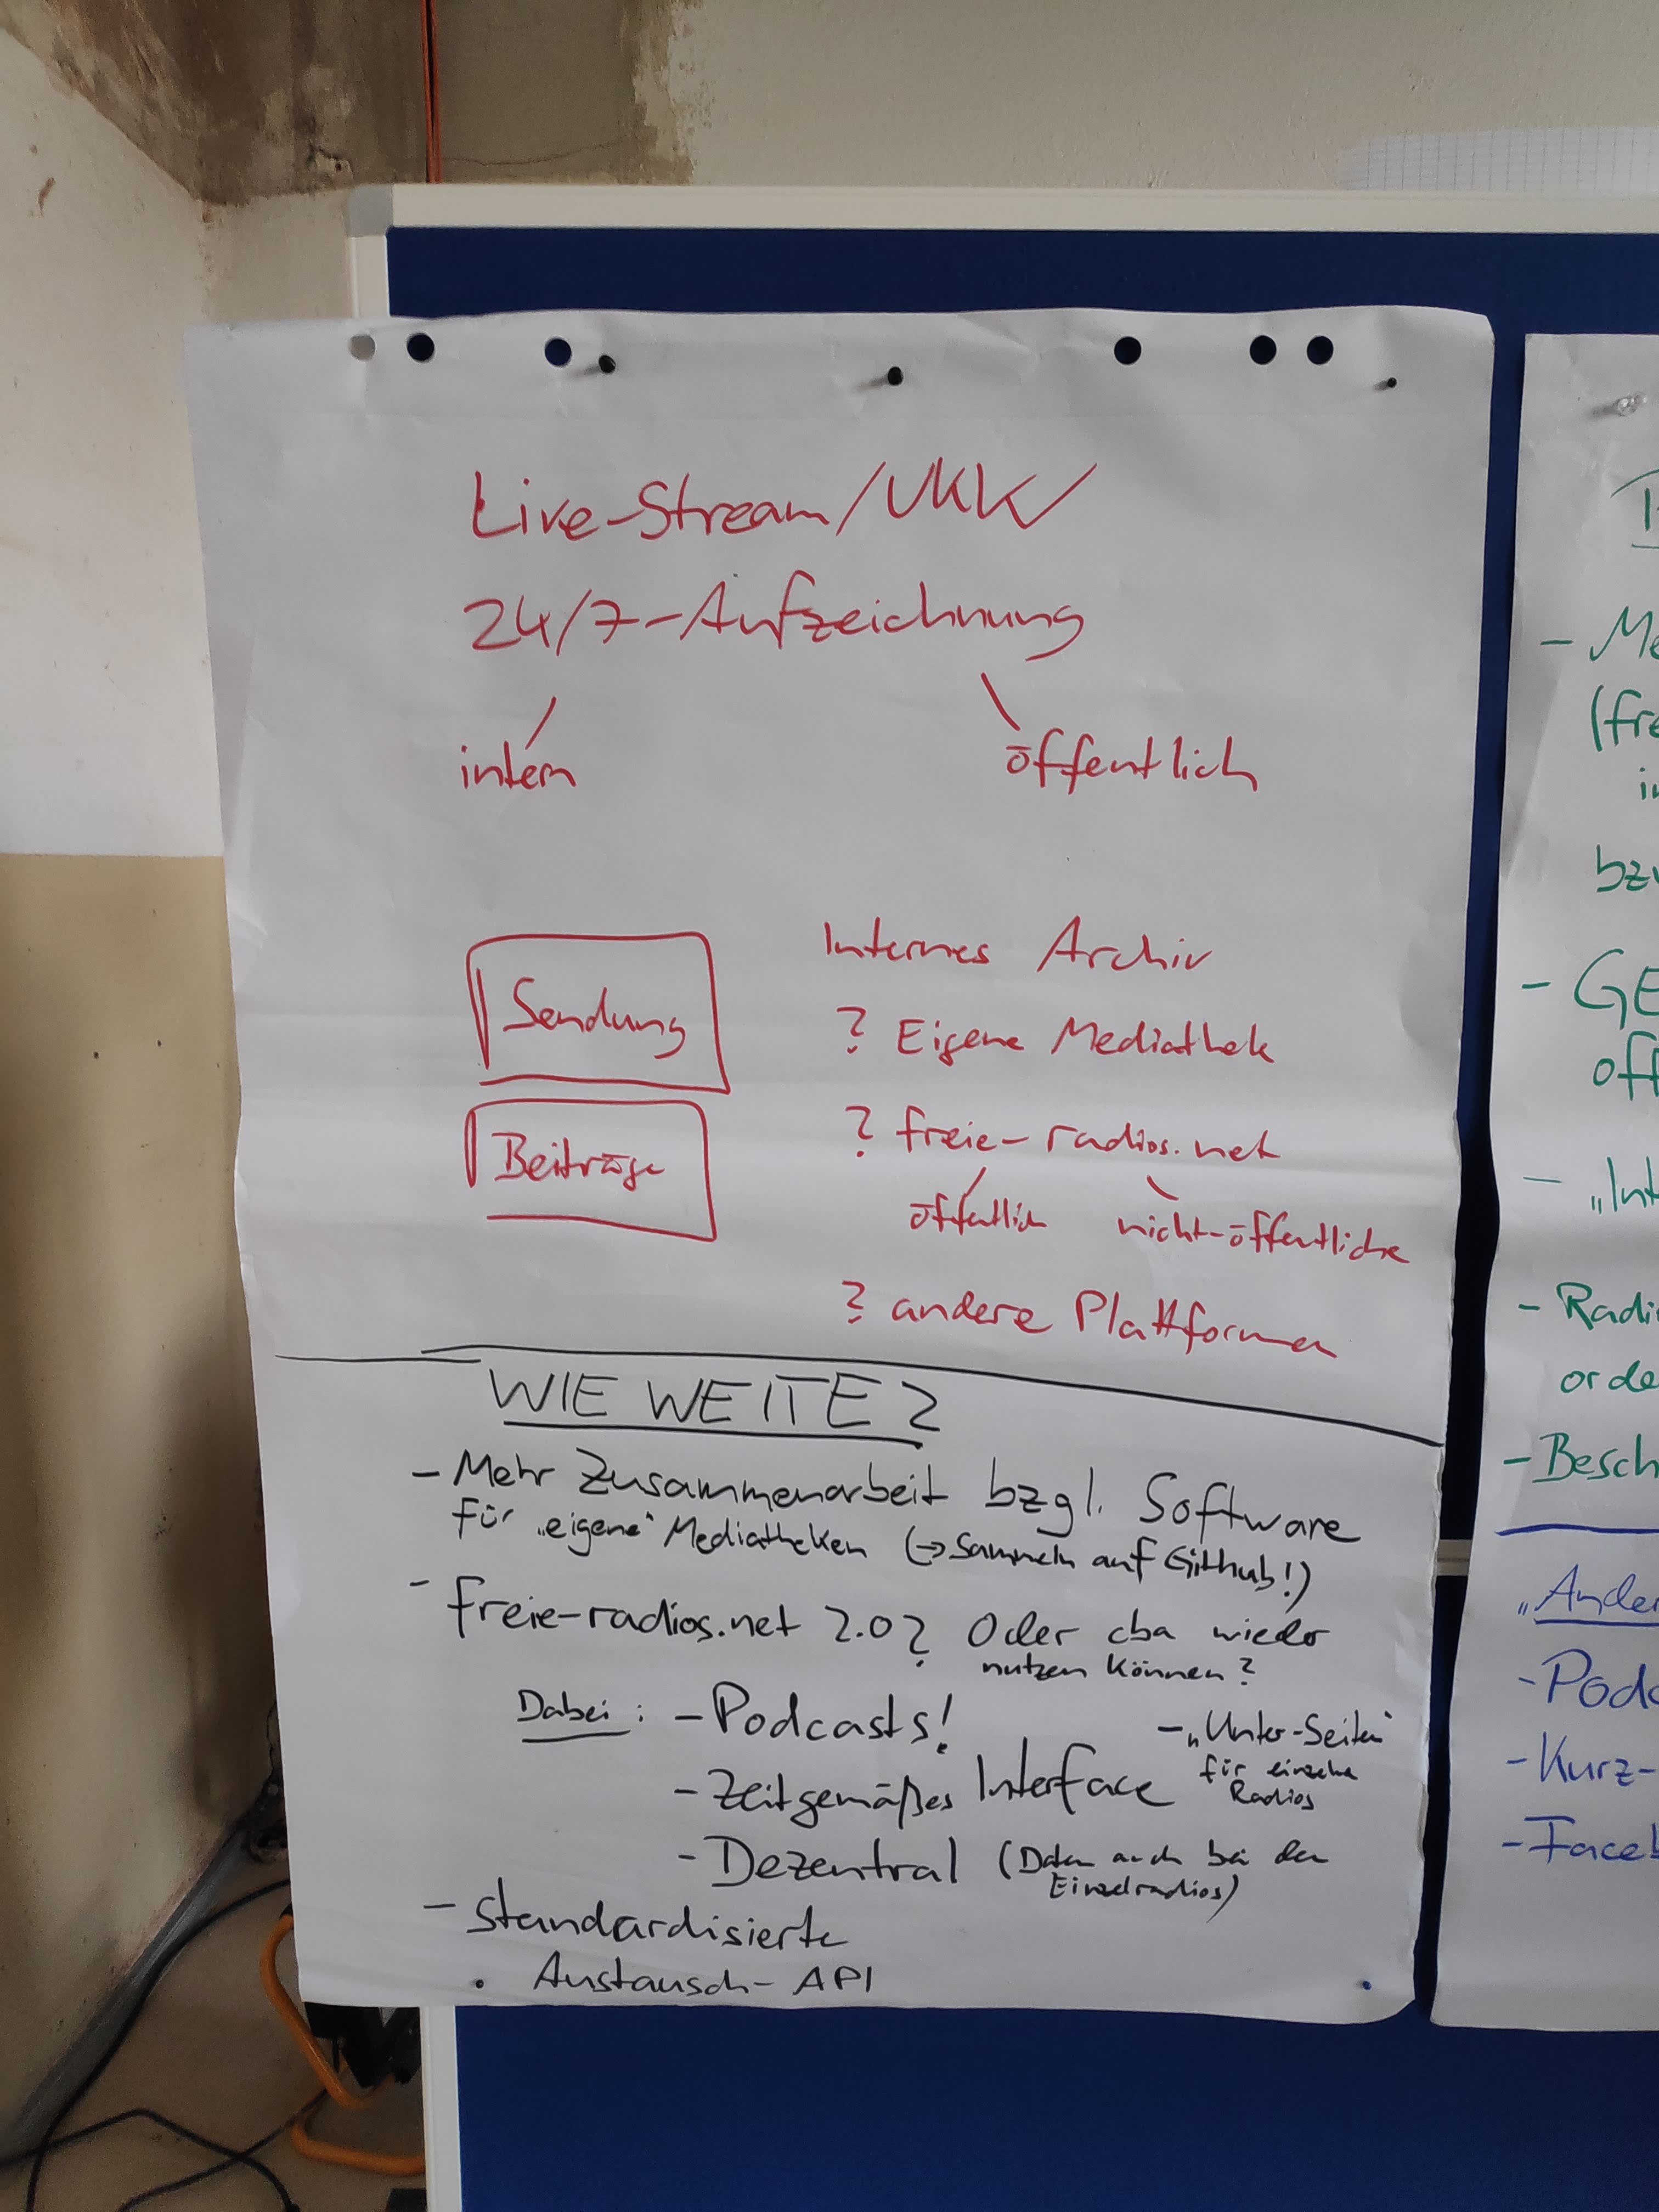 Live-Stream/UKW
24/7-Aufzeichnung
intern
öffentlich
Sendung
Beiträge
Internes Archiv
? Eigene Mediathek
? freie-radios.net
öffentlich nicht-öffentliche
? andere Plattformen
WIE WEITE?
- Mehr Zusammenarbeit bzgl. Software
für „eigene" Mediatheken (→ Sammeln auf Github!)
- freie-radios.net 2.0? Oder cba wieder
nutzen können?
Dabei: - Podcasts!
- Zeitgemäßes Interface
- „Unter-Seiten"
für einzelne
Radios
- Dezentral (Daten auch bei den
Einzelradios)
- standardisierte
Austausch-API
- Me
(fre
in
bzw
- GE
öff
- „Int
- Radi
orde
- Besch
„Ander
- Podc
- Kurz-
- Faceb